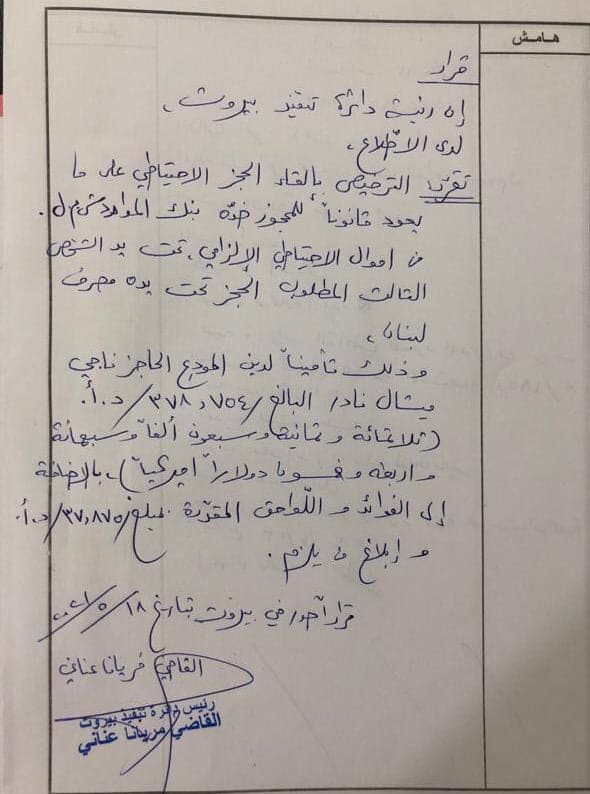 هامش
قرار
إن رئيسة دائرة تنفيذ بيروت،
لدى الاطّلاع،
تقرّر الترخيص بالقاء الحجز الاحتياطي على ما
يعود قانوناً للمحجوز ضدّه بنك الموارد ش.م.ل.
من اموال الاحتياطي الإلزامي، تحت يد الشخص
الثالث المطلوب الحجز تحت يده مصرف
لبنان،
وذلك تأميناً لدين المودع الحاجز ناجي
ميشال نادر البالغ /٣٧٨,٧٥٤/ د.أ.
(ثلاثمائة وثمانية وسبعون ألفاً وسبعمائة
واربعة وخمسون دولاراً اميركياً)، بالإضافة
إلى الفوائد واللّواحق المقدّرة بمبلغ /٣٧,٨٧٥/ د.أ.
وإبلاغ من يلزم.
قراراً صدر في بيروت بتاريخ ١٨/٥/
القاضي مريانا عناني
رئيس دائرة تنفيذ بيروت
القاضي مريانا عناني